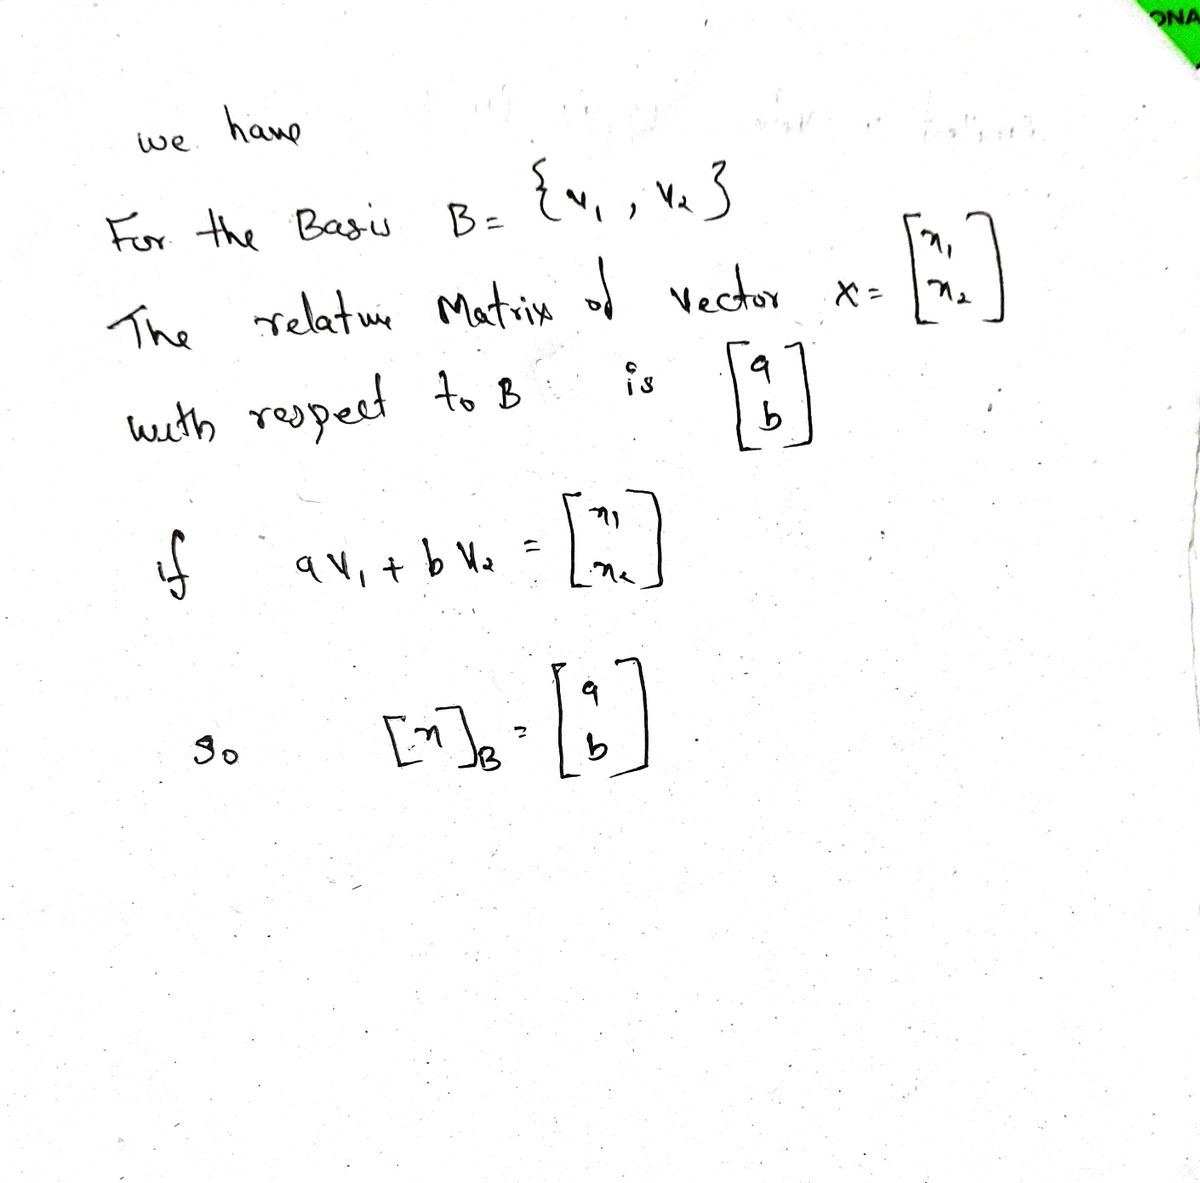 ONA
we have
For the Basis B = {v₁, v₂}
The relative Matrix of vector x = [x₁ x₂]
with respect to B is [a b]
if a v₁ + b v₂ = [x₁ x₂]
so [x]_B = [a b]